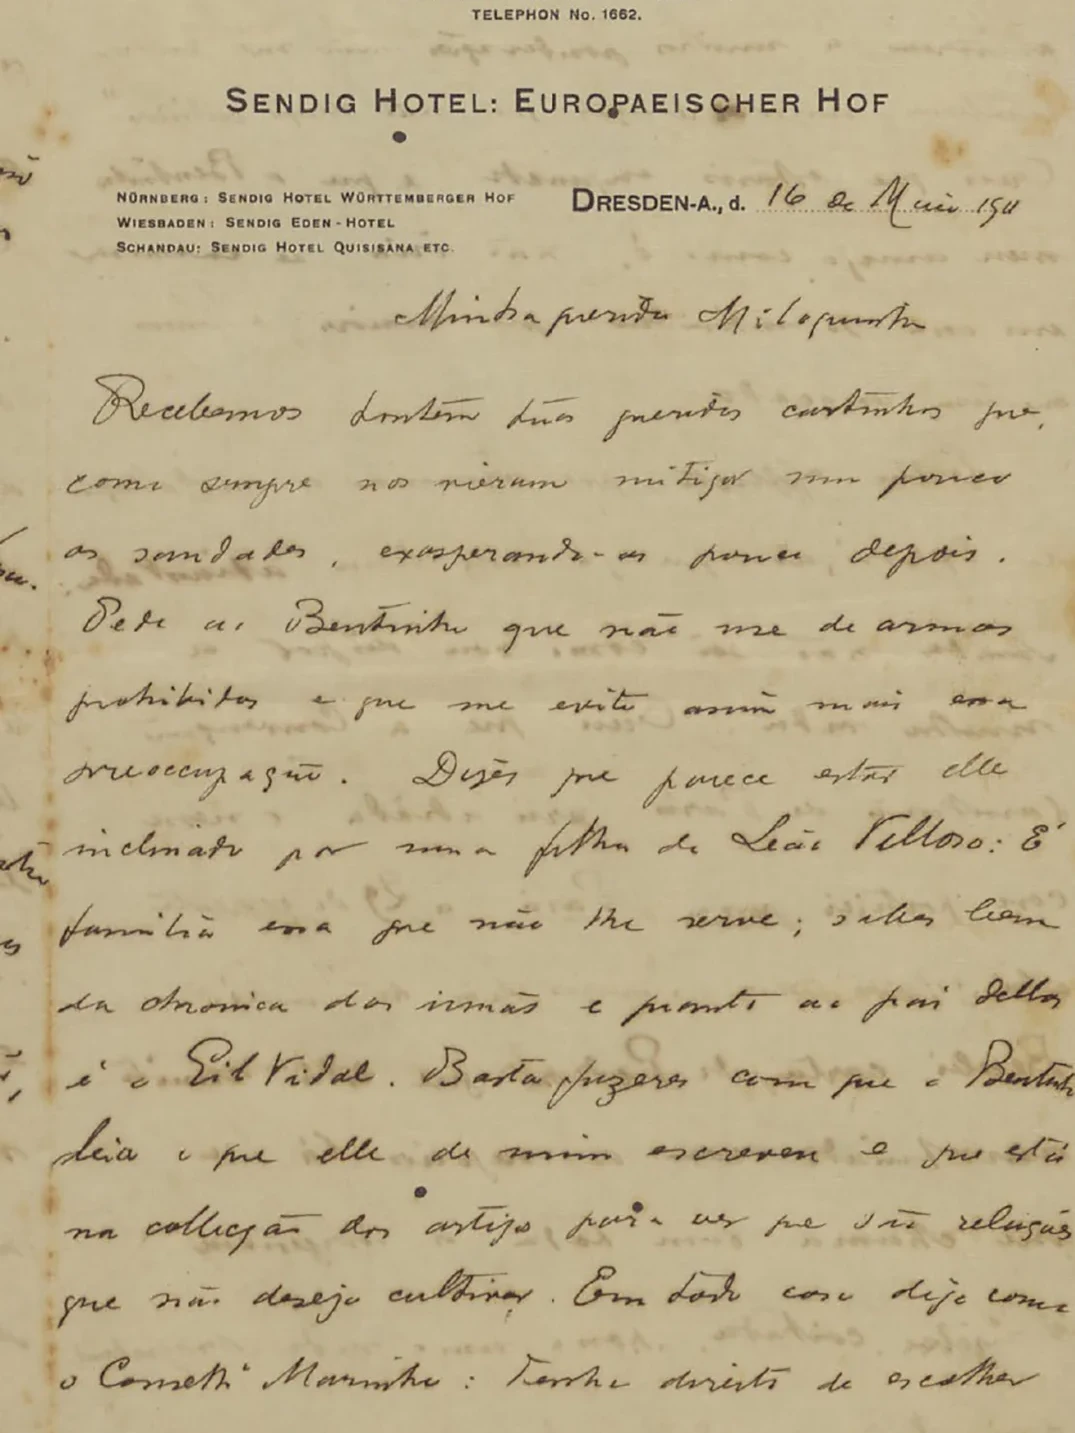 TELEPHON No. 1662.
SENDIG HOTEL: EUROPAEISCHER HOF
NÜRNBERG: SENDIG HOTEL WÜRTTEMBERGER HOF
WIESBADEN: SENDIG EDEN-HOTEL
SCHANDAU: SENDIG HOTEL QUISISANA ETC.
DRESDEN-A., d. 16 de Maio 1911
Minha querida
Recebemos hontem duas queridas cartinhas que,
como sempre nos vieram mitigar um pouco
as saudades, exasperando-as pouco depois.
Pede ao Bentinho que não use de armas
prohibidas e que me evite assim mais essa
preoccupação. Dizes que parece estar elle
inclinado por uma filha do Leão Velloso: É
familia essa que não lhe serve; sabes bem
da chronica das irmãs e quanto ao pai dellas
é o Gil Vidal. Basta fazeres com que o Bentinho
leia o que elle de mim escreveu e que está
na collecção dos artigos para ver que são relações
que não desejo cultivar. Em todo caso digo como
o Marinho: Tenha direito de escolher